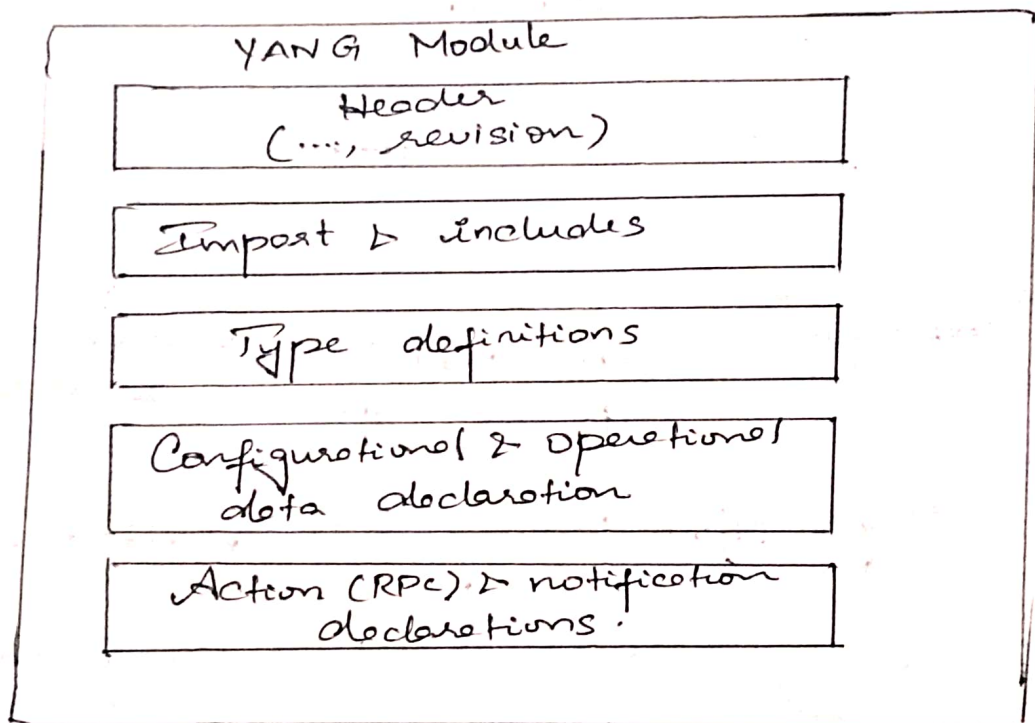 YANG Module
Header
(...., revision)
Import & includes
Type definitions
Configurational & operational
data declaration
Action (RPC) & notification
declarations.